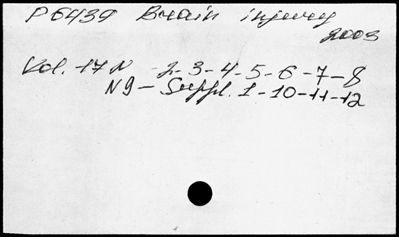 P6439 Brain injury
2003
Vol. 17 N 2-3-4-5-6-7-8
N9-Suppl. 1-10-11-12